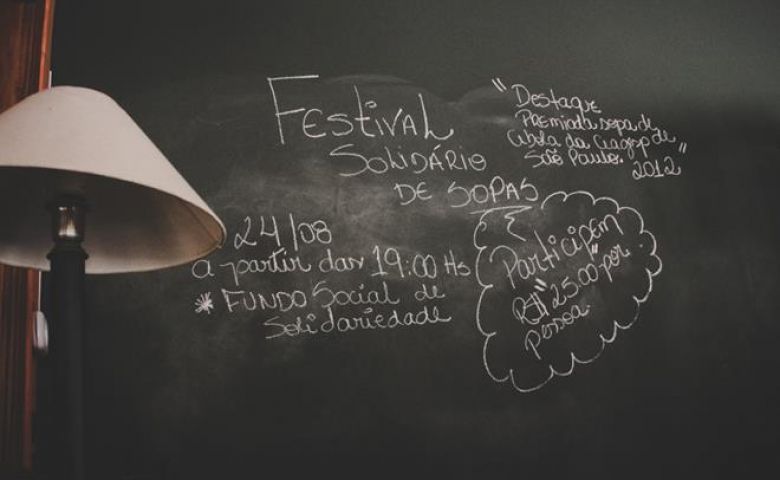 FESTIVAL
SOLIDÁRIO
DE SOPAS
"Destaque
Premiada sopa de
cebola da Ceagesp de
São Paulo."
2012
24/08
a partir das 19:00 Hs
* FUNDO Social de
Solidariedade
Participem
"
R$ 25,00 por
pessoa.